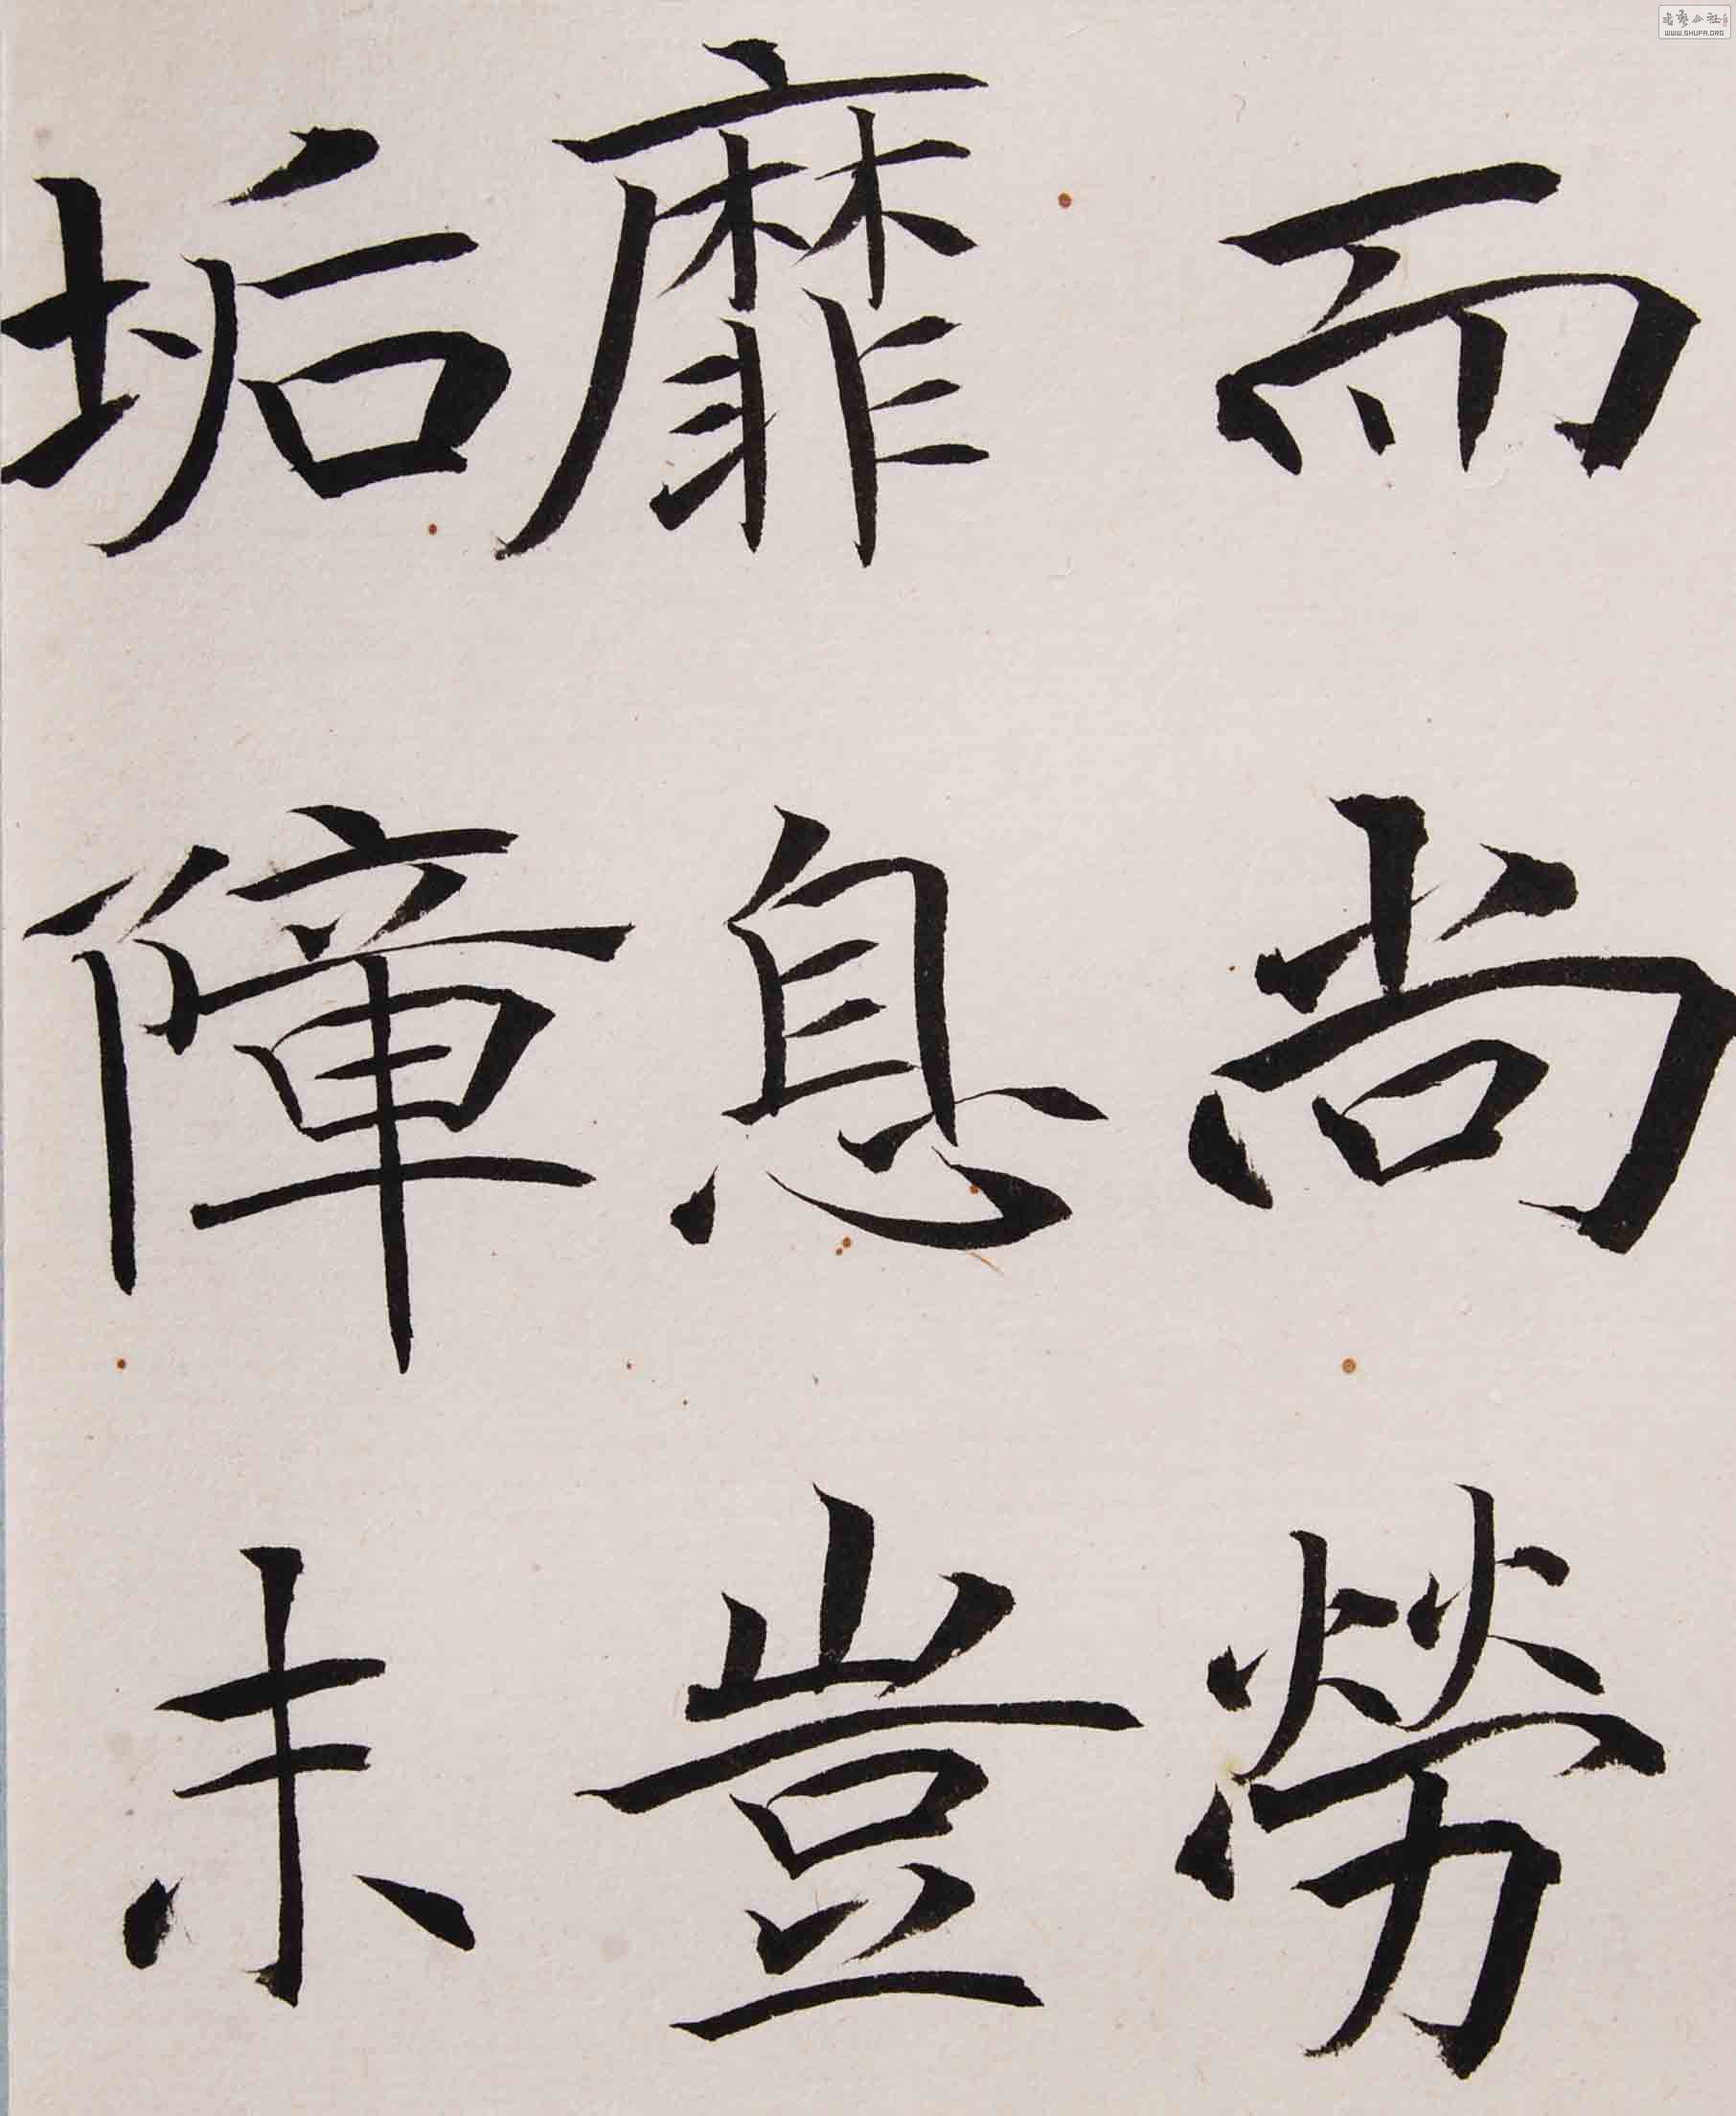 而尚勞
靡息豈
垢障未
書藝公社
WWW.SHUFA.ORG